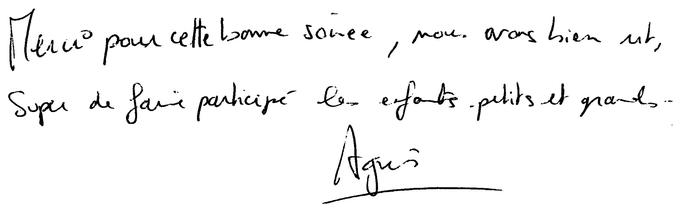 Merci pour cette bonne soirée, nous avons bien rit,
Super de faire participé les enfants petits et grands..
Agnès